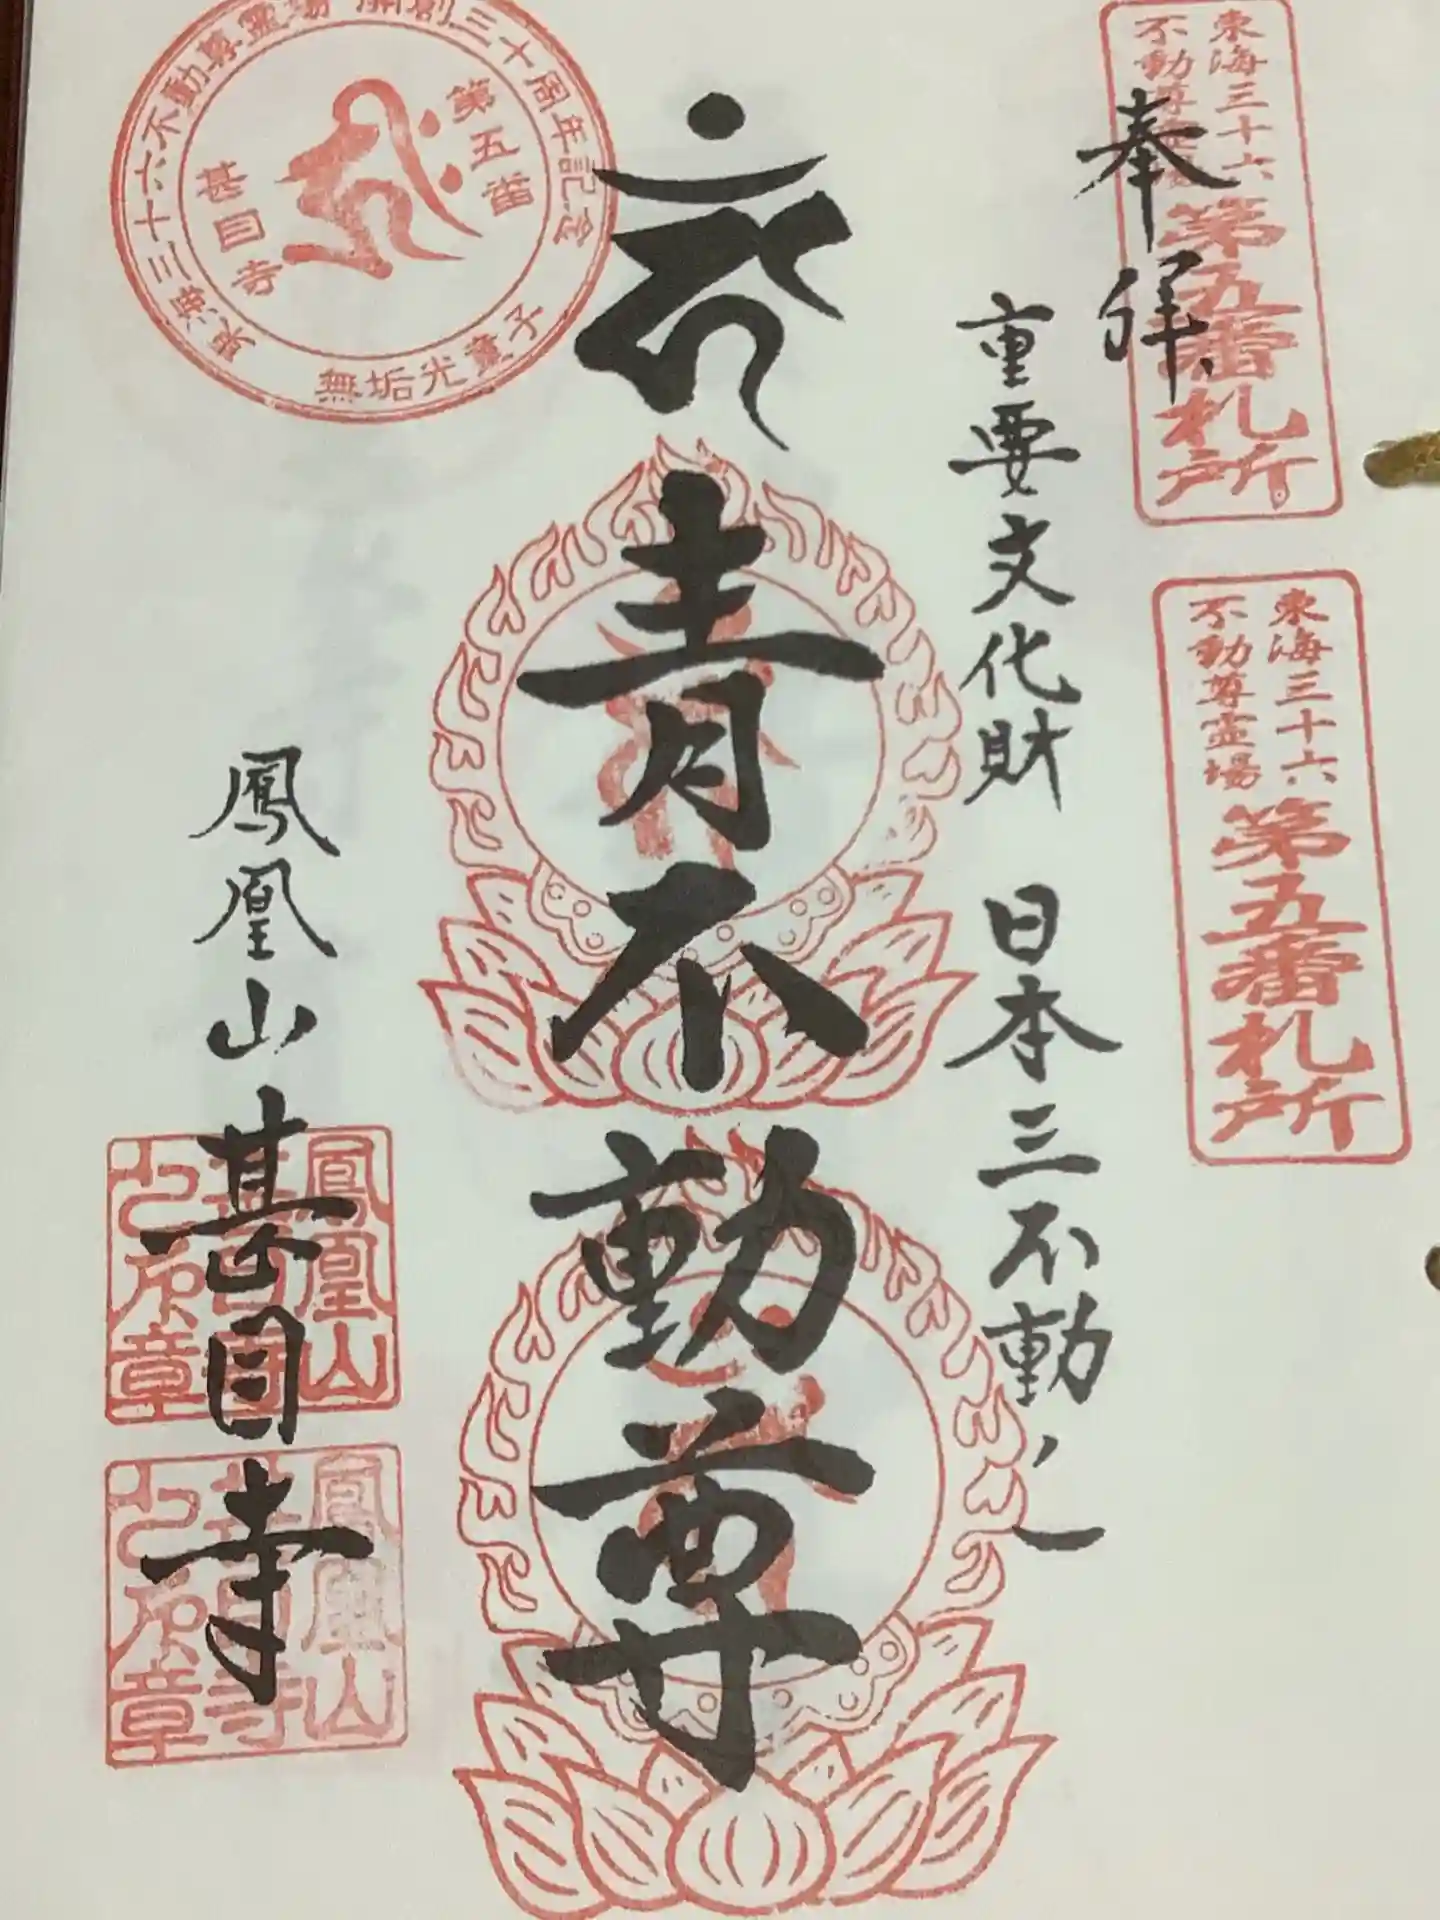 奉拝
東海三十六
不動尊霊場
第五番札所
東海三十六
不動尊霊場
第五番札所
重要文化財 日本三不動ノ一
青不動尊
鳳凰山 甚目寺
東海三十六不動尊霊場 開創三十周年記念
第五番
甚目寺
無垢光童子
鳳凰山
甚目寺
之印章
鳳凰山
甚目寺
之印章